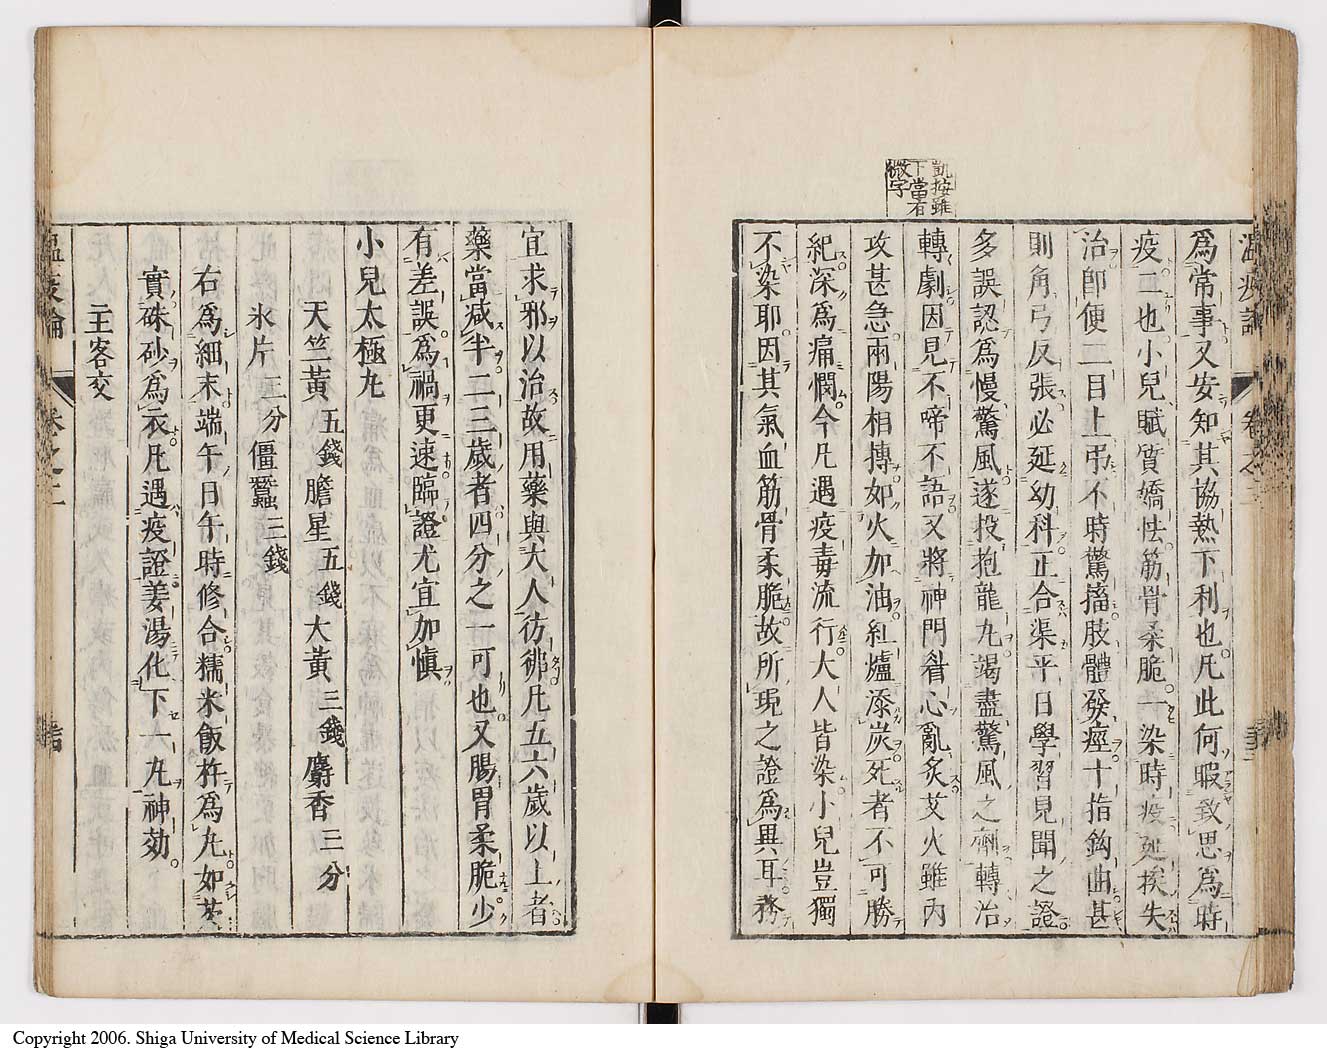 凱按雖
下當有
微字
溫疫論
卷之二
爲常事又安知其協熱下利也凡此何暇致思爲時
疫二也小兒賦質嬌怯筋骨柔脆一染時疫延挨失
治卽便二目上弔不時驚搐肢體發痙十指鈎曲甚
則角弓反張必延幼科正合渠平日學習見聞之證
多誤認爲慢驚風遂投抱龍丸竭盡驚風之劑轉治
轉劇因見不啼不語又將神門眷心亂炙艾火雖內
攻甚急兩陽相摶如火加油紅爐添炭死者不可勝
紀深爲痛憫今凡遇疫毒流行大人皆染小兒豈獨
不染耶因其氣血筋骨柔脆故所現之證爲異耳務
宜求邪以治故用藥與大人彷彿凡五六歲以上者
藥當減半二三歲者四分之一可也又腸胃柔脆少
有差誤爲禍更速臨證尤宜加愼
小兒太極丸
天竺黃五錢膽星五錢大黃三錢麝香三分
氷片三分僵蠶三錢
右爲細末端午日午時修合糯米飯杵爲丸如芡
實硃砂爲衣凡遇疫證姜湯化下一丸神効
主客交
溫疫論
卷之二
Copyright 2006. Shiga University of Medical Science Library